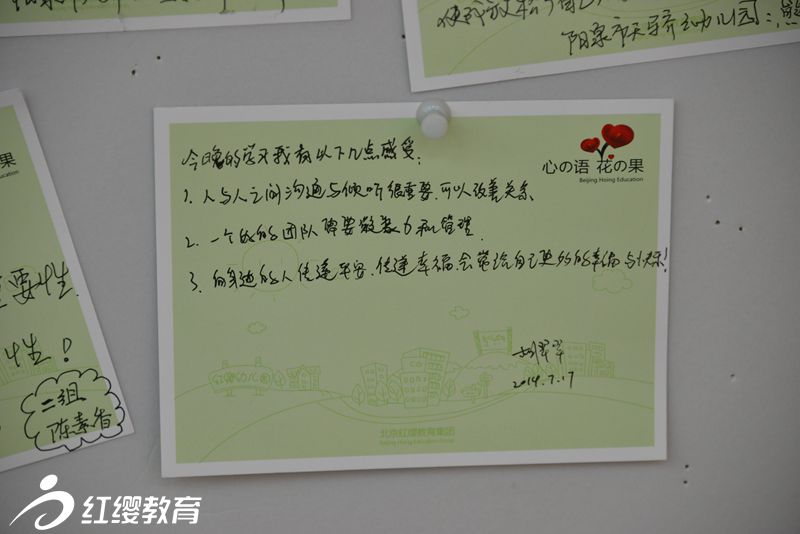 使成
阳泉市天骄幼儿园:
心の语 花の果
Beijing Hoing Education
今晚的学习我有以下几点感受:
1. 人与人之间沟通与倾听很重要,可以改善关系
2. 一个好的团队需要凝聚力和管理.
3. 向身边的人传递平安、传递幸福,会带给自己更多的幸福与快乐!
2014.7.17
红缨幼儿园
北京红缨教育集团
Beijing Hoing Education Group
果
Education
重要性.
性!
二组
陈素香
红缨教育